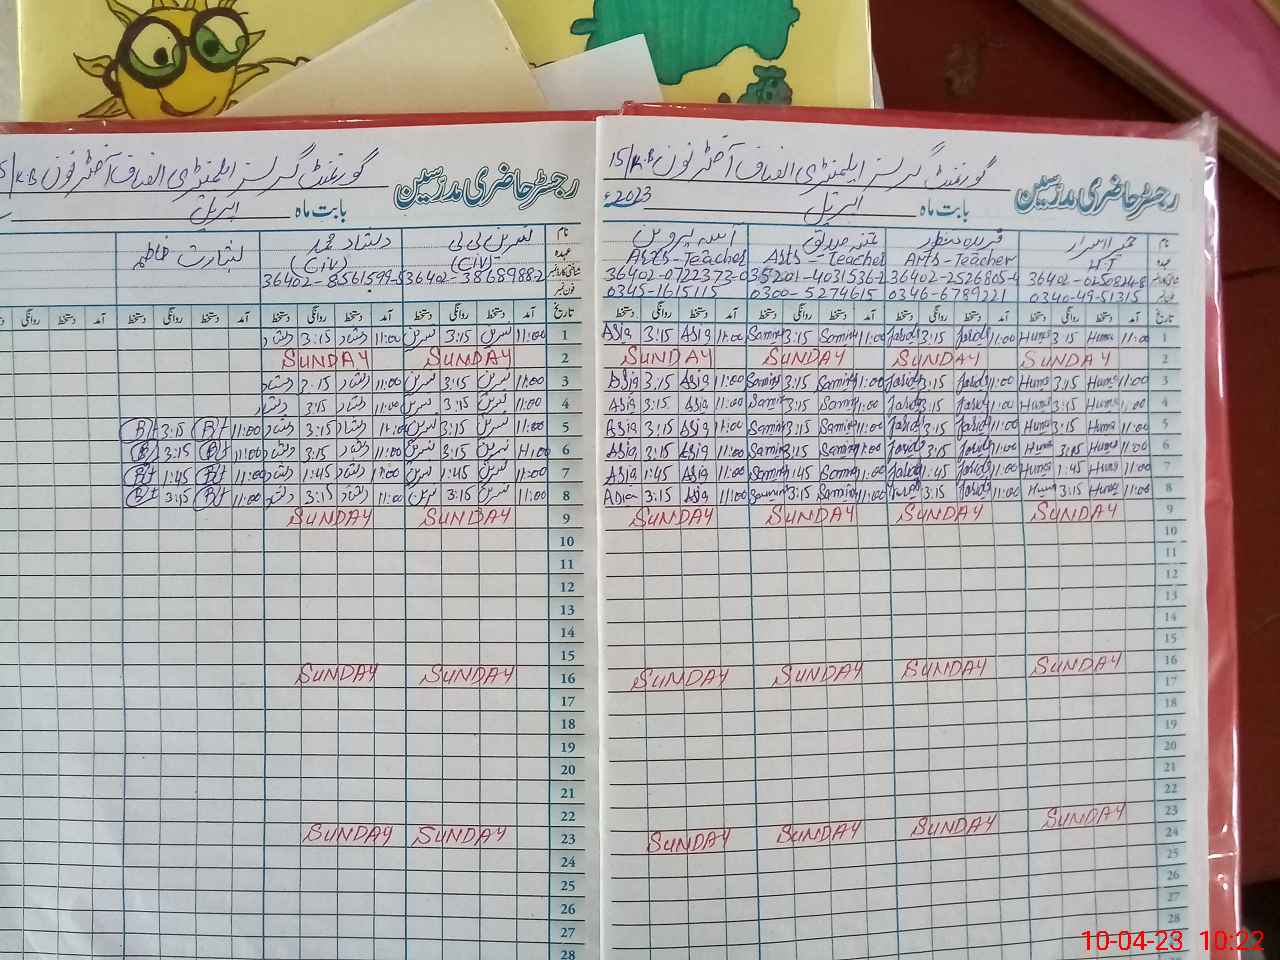 گورنمنٹ گرلز ایلمنٹری الفاق آفٹر نون 15/K.B رجسٹر حاضری مدرسین
بابت ماہ اپریل 2023ء
نام
عہدہ Arts-Teacher Arts-Teacher Arts-Teacher HT
36402-0722372-0 35201-4031536-2 36402-2526805-4 36402-0250824-8
فون نمبر 0345-1615115 0300-5274615 0346-6789221 0340-49-51315
تاریخ آمد دستخط روانگی دستخط آمد دستخط روانگی دستخط آمد دستخط روانگی دستخط آمد دستخط روانگی دستخط
1 11:00 Huma 3:15 Huma 11:00 3:15 11:00 Samina 3:15 Samina 11:00 Asia 3:15 Asia
2 SUNDAY SUNDAY SUNDAY SUNDAY
3 11:00 Huma 3:15 Huma 11:00 3:15 11:00 Samina 3:15 Samina 11:00 Asia 3:15 Asia
4 11:00 Huma 3:15 Huma 11:00 3:15 11:00 Samina 3:15 Samina 11:00 Asia 3:15 Asia
5 11:00 Huma 3:15 Huma 11:00 3:15 11:00 Samina 3:15 Samina 11:00 Asia 3:15 Asia
6 11:00 Huma 3:15 Huma 11:00 3:15 11:00 Samina 3:15 Samina 11:00 Asia 3:15 Asia
7 11:00 Huma 1:45 Huma 11:00 1:45 11:00 Samina 1:45 Samina 11:00 Asia 1:45 Asia
8 11:00 Huma 3:15 Huma 11:00 3:15 11:00 Samina 3:15 Samina 11:00 Asia 3:15 Asia
9 SUNDAY SUNDAY SUNDAY SUNDAY
10
11
12
13
14
15
16 SUNDAY SUNDAY SUNDAY SUNDAY
17
18
19
20
21
22
23 SUNDAY SUNDAY SUNDAY SUNDAY
24
25
26
27
28
گورنمنٹ گرلز ایلمنٹری الفاق آفٹر نون 5/K.B رجسٹر حاضری مدرسین
بابت ماہ اپریل
نام نسرین بی بی دلشاد محمد بشارت فاطمہ
عہدہ (Civ) (Civ)
36402-3868988-2 36402-8561599-5
فون نمبر
تاریخ آمد دستخط روانگی دستخط آمد دستخط روانگی دستخط آمد دستخط روانگی دستخط روانگی
1 11:00 نسرین 3:15 نسرین 11:00 دلشاد 3:15 دلشاد
2 SUNDAY SUNDAY
3 11:00 نسرین 3:15 نسرین 11:00 دلشاد 3:15 دلشاد
4 11:00 نسرین 3:15 نسرین 11:00 دلشاد 3:15 دلشاد
5 11:00 نسرین 3:15 نسرین 11:00 دلشاد 3:15 دلشاد 11:00 3:15
6 11:00 نسرین 3:15 نسرین 11:00 دلشاد 3:15 دلشاد 11:00 3:15
7 11:00 نسرین 1:45 نسرین 11:00 دلشاد 1:45 دلشاد 11:00 1:45
8 11:00 نسرین 3:15 نسرین 11:00 دلشاد 3:15 دلشاد 11:00 3:15
9 SUNDAY SUNDAY
10
11
12
13
14
15
16 SUNDAY SUNDAY
17
18
19
20
21
22
23 SUNDAY SUNDAY
24
25
26
27
28
10-04-23 10:22